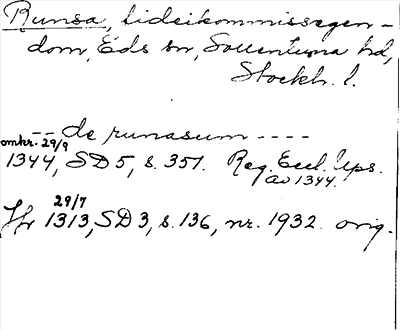 Runsa, fideikommissegen-
dom, Eds sn, Sollentuna hd,
Stockh. l.
-- de runasum ----
omkr. 29/9
1344, SD 5, s. 351. Reg. Eccl. Ups.
av 1344.
29/7
Hr 1313, SD 3, s. 136, nr. 1932. orig.